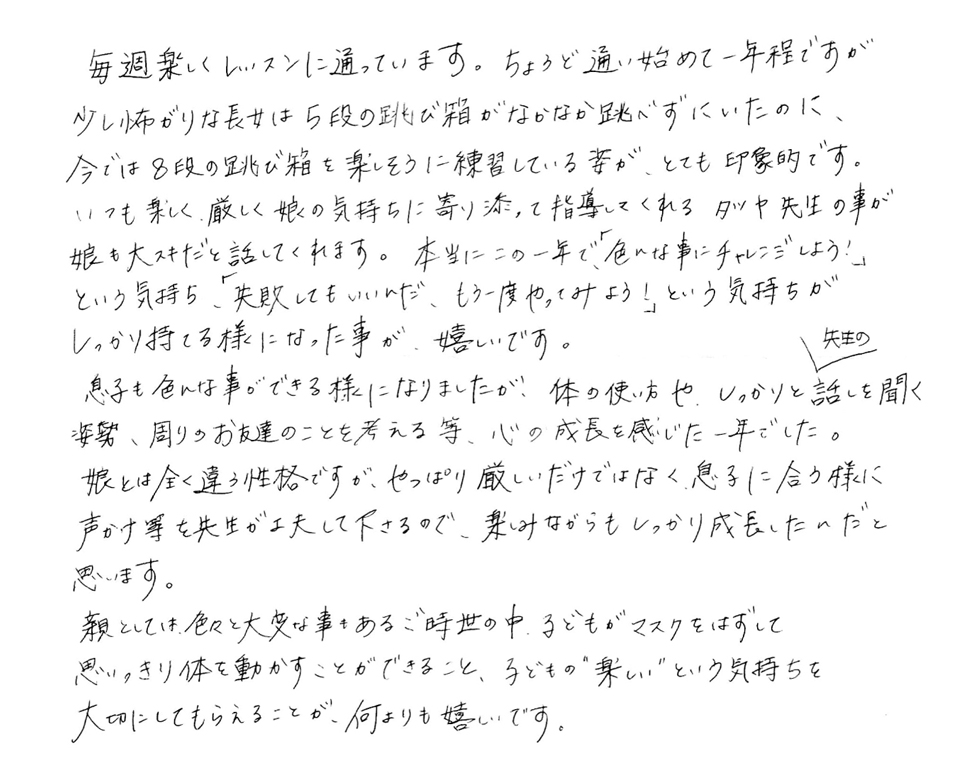 毎週楽しくレッスンに通っています。ちょうど通い始めて一年程ですが
少し怖がりな長女は5段の跳び箱がなかなか跳べずにいたのに、
今では8段の跳び箱を楽しそうに練習している姿が、とても印象的です。
いつも楽しく、厳しく娘の気持ちに寄り添って指導してくれるタツヤ先生の事が
娘も大スキだと話してくれます。本当にこの一年で、「色んな事にチャレンジしよう!」
という気持ち、「失敗してもいいんだ、もう一度やってみよう!」という気持ちが
しっかり持てる様になった事が、嬉しいです。
息子も色んな事ができる様になりましたが、体の使い方や、しっかりと先生の話しを聞く
姿勢、周りのお友達のことを考える等、心の成長を感じた一年でした。
娘とは全く違う性格ですが、やっぱり厳しいだけではなく、息子に合う様に
声かけ等を先生が工夫して下さるので、楽しみながらもしっかり成長したんだと
思います。
親としては、色々と大変な事もあるご時世の中、子どもがマスクをはずして
思いっきり体を動かすことができること、子どもの"楽しい"という気持ちを
大切にしてもらえることが、何よりも嬉しいです。